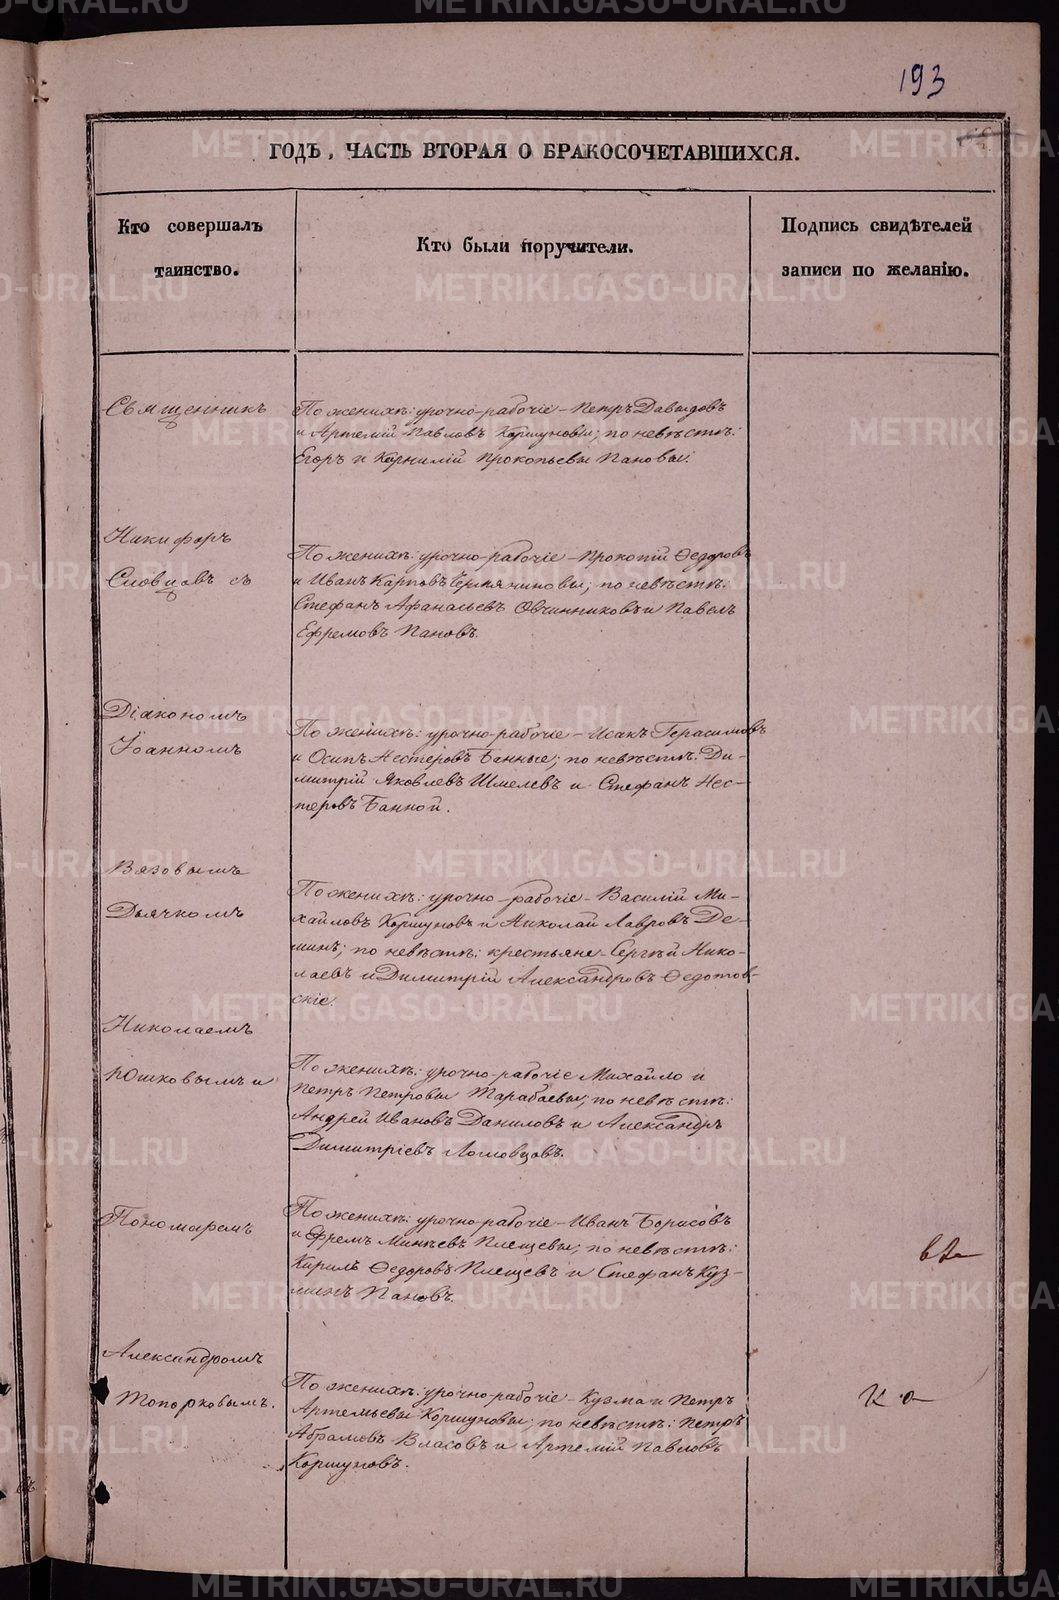 193
ГОДЪ, ЧАСТЬ ВТОРАЯ О БРАКОСОЧЕТАВШИХСЯ.
Кто совершалъ
таинство.
Кто были поручители.
Подпись свидѣтелей
записи по желанію.
Священникъ
Никифоръ
Словцовъ съ
Діакономъ
Іоанномъ
Вязовымъ
Дьячкомъ
Николаемъ
Юшковымъ и
Пономаремъ
Александромъ
Топорковымъ.
По женихѣ: урочно-рабочіе - Петръ Давыдовъ
и Артемій Павловъ Коршуновы; по невѣстѣ:
Егоръ и Корнилій Прокопьевы Пановы.
По женихѣ: урочно-рабочіе - Прокопій Ѳедоровъ
и Иванъ Карповъ; по невѣстѣ:
Стефанъ Афанасьевъ Овчинниковъ и Павелъ
Ефремовъ Пановъ.
По женихѣ: урочно-рабочіе - Исакъ Герасимовъ
и Осипъ Нестеровъ Банные; по невѣстѣ: Ди-
митрій Яковлевъ Шмелевъ и Стефанъ Нес-
теровъ Банной.
По женихѣ: урочно-рабочіе - Василій Ми-
хайловъ Коршуновъ и Николай Лавровъ Де-
минъ; по невѣстѣ: крестьяне - Сергѣй Нико-
лаевъ и Димитрій Александровъ Ѳедотов-
скіе.
По женихѣ: урочно-рабочіе Михайло и
Петръ Петровы Тарабаевы; по невѣстѣ:
Андрей Ивановъ Даниловъ и Александръ
Димитріевъ Логловцовъ.
По женихѣ: урочно-рабочіе - Иванъ Борисовъ
и Ефремъ Минѣевъ Плещевы; по невѣстѣ:
Кирилъ Ѳедоровъ Плещевъ и Стефанъ Куз-
минъ Пановъ.
По женихѣ: урочно-рабочіе - Кузма и Петръ
Артемьевы Коршуновы; по невѣстѣ: Петръ
Абрамовъ Власовъ и Артемій Павловъ
Коршуновъ.
METRIKI.GASO-URAL.RU